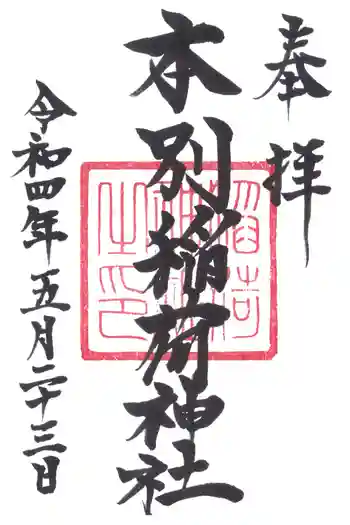 奉拝
本別稲荷神社
令和四年五月二十三日